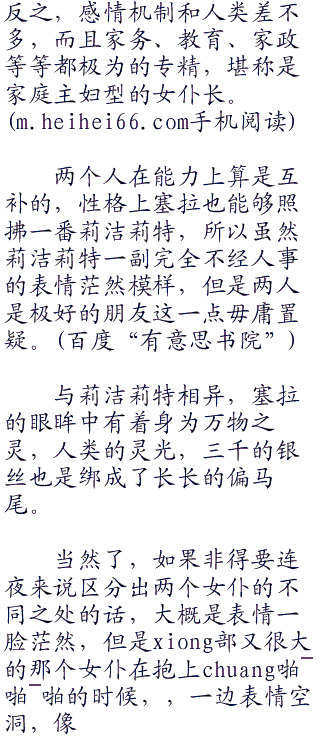 反之，感情机制和人类差不
多，而且家务、教育、家政
等等都极为的专精，堪称是
家庭主妇型的女仆长。
(m.heihei66.com手机阅读)
两个人在能力上算是互
补的，性格上塞拉也能够照
拂一番莉洁莉特，所以虽然
莉洁莉特一副完全不经人事
的表情茫然模样，但是两人
是极好的朋友这一点毋庸置
疑。(百度“有意思书院”)
与莉洁莉特相异，塞拉
的眼眸中有着身为万物之
灵，人类的灵光，三千的银
丝也是绑成了长长的偏马
尾。
当然了，如果非得要连
夜来说区分出两个女仆的不
同之处的话，大概是表情一
脸茫然，但是xiong部又很大
的那个女仆在抱上chuang啪¯
啪¯啪的时候，，一边表情空
洞，像